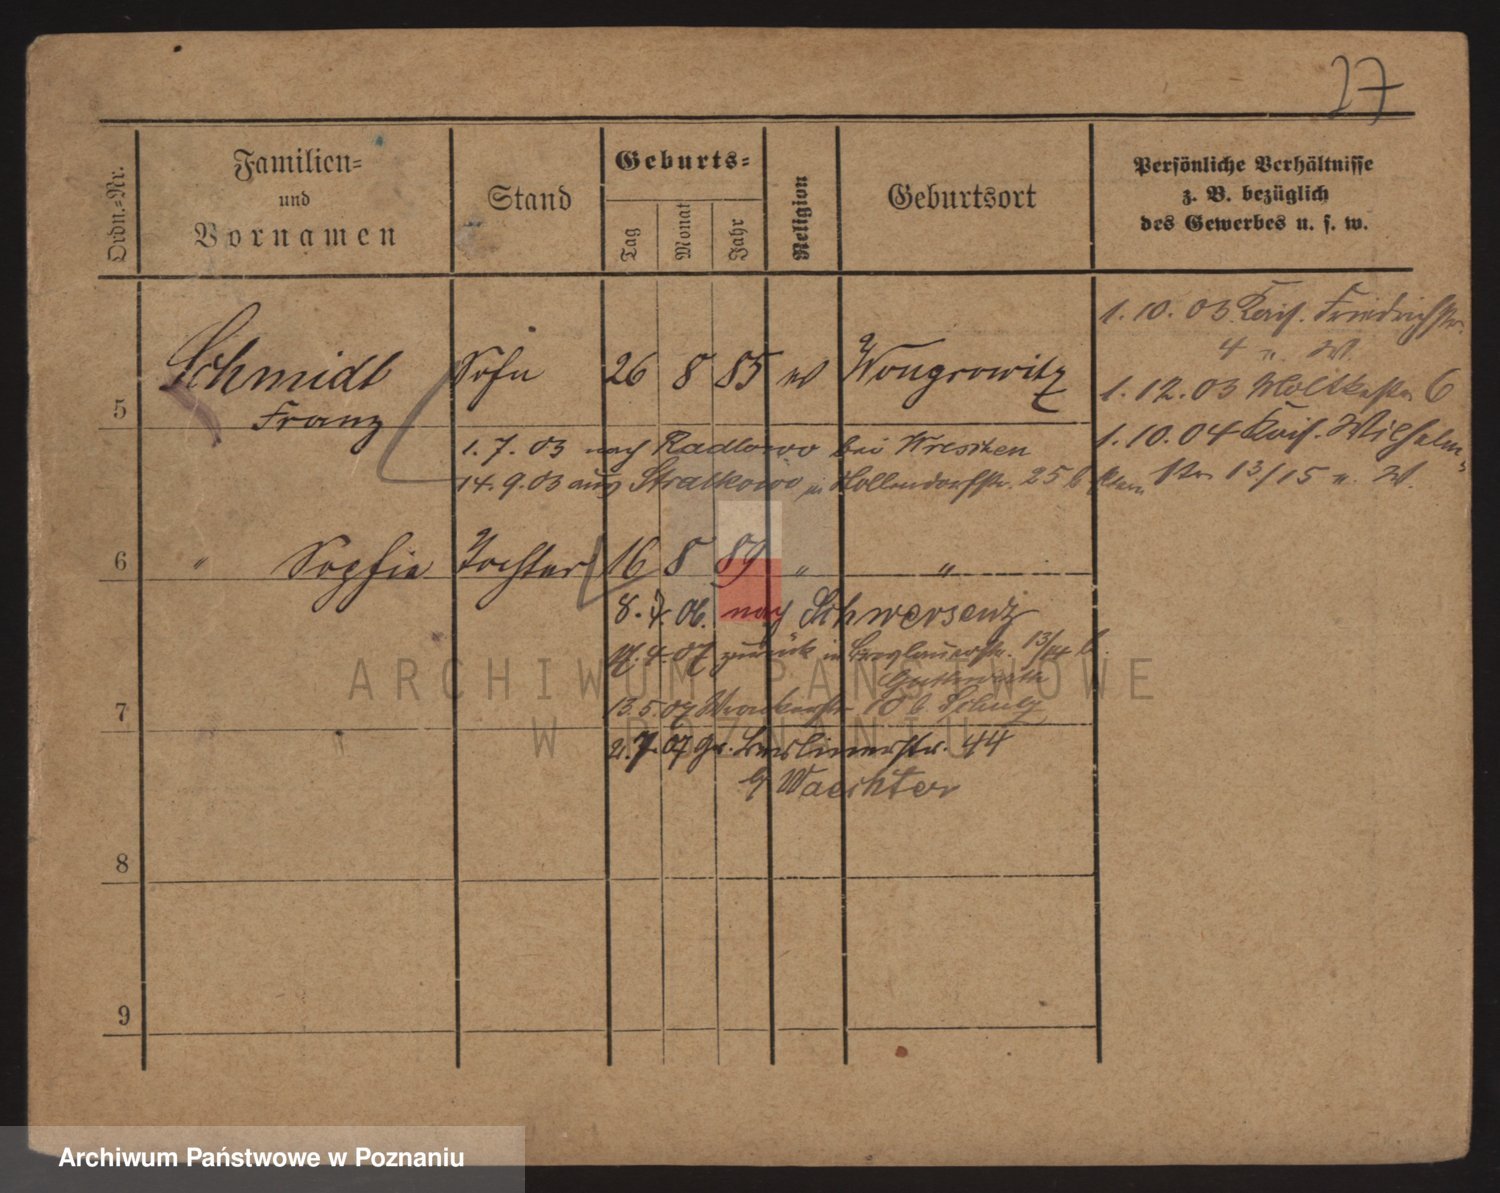 27
Ordn.-Nr.
Familien-
und
Vornamen
Stand
Geburts-
Tag
Monat
Jahr
Religion
Geburtsort
Persönliche Verhältnisse
z. B. bezüglich
des Gewerbes u. s. w.
1. 10. 03 Kais. Friedrichstr.
4 n. W.
5 Schmidt Sohn 26 8 85 Wongrowitz
Franz
1. 12. 03 Moltkestr. 6
1. 7. 03 nach Radlowo bei Wreschen
1. 10. 04 Kais. Wilhelm-
14. 9. 03 aus Stralkowo Hollendorfstr. 25 b
str. 13/15 n. W.
6 " Sophie Tochter 16 8 89 " "
8. 7. 06. nach Schwersenz
4. 07 zurück in Breslauerstr. 13/14 b.
7
13. 5. 07 Wronkerstr. 10 b. Schulz
2. 7. 07 Gr. Berlinerstr. 44
b Waechter
8
9
ARCHIWUM PAŃSTWOWE
W POZNANIU
Archiwum Państwowe w Poznaniu